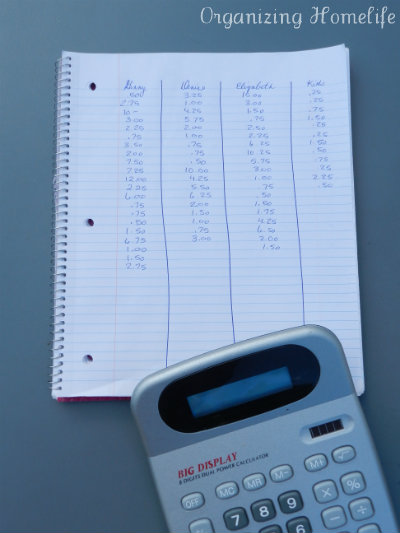 Organizing Homelife
Denise Elizabeth Kids
500 3.25 15.00 .25
2.75 1.00 3.00 .25
10- 4.25 1.50 .75
3.00 5.75 .75 1.50
2.25 2.00 2.50 .25
.75 1.00 2.25 .25
3.50 .75 6.25 1.50
2.00 .75 10.25 .50
7.50 .50 5.75 .75
7.25 10.00 3.00 .25
12.00 4.25 1.00 2.25
2.25 5.50 .75 .50
6.00 6.25 .50
.75 2.00 1.50
.75 1.50 1.75
.50 1.00 4.25
1.50 .75 6.50
6.75 3.00 2.00
1.00 1.50
1.50
2.75
BIG DISPLAY
8 DIGITS DUAL POWER CALCULATOR
OFF MC MR M- M+ √
7 8 9 X %